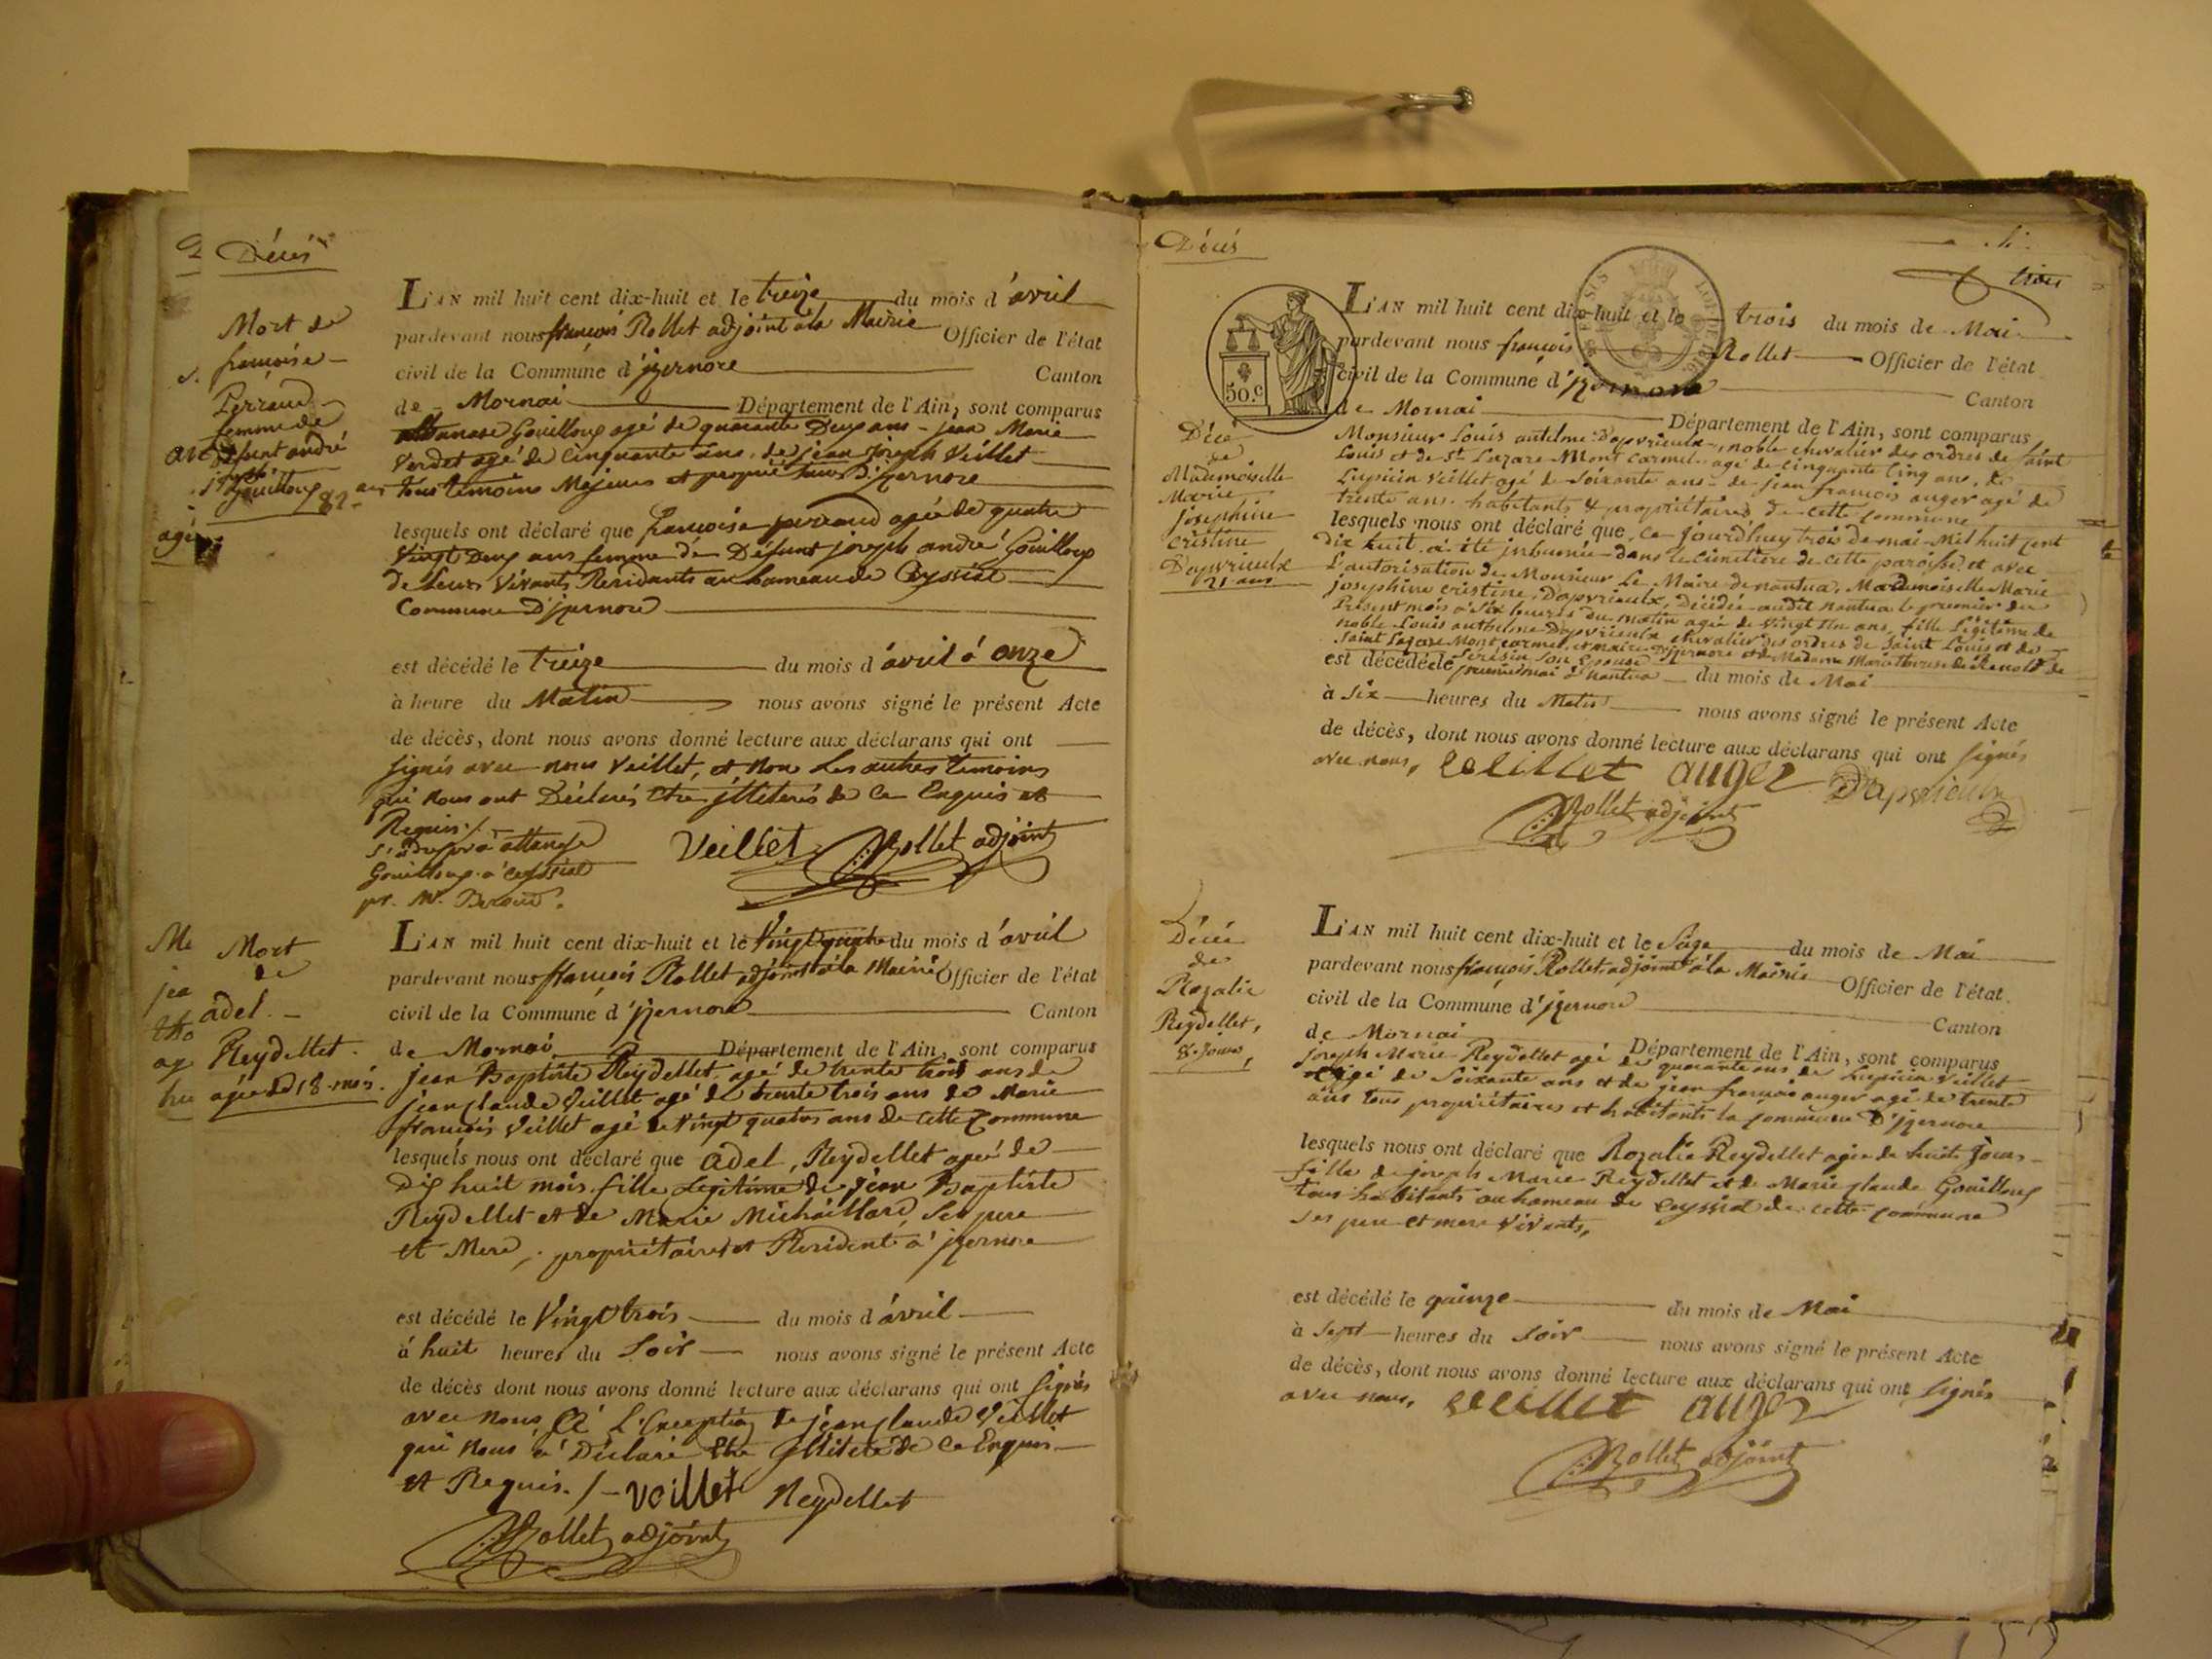 2 Décès
Mort de
françoise
Perraud
femme de
défunt andré
Gouilloux
82 ans
L'AN mil huit cent dix-huit et le treize du mois d'avril
pardevant nous françois Rollet adjoint à la Mairie Officier de l'état
civil de la Commune d'jzernore Canton
de Mornai Département de l'Ain, sont comparus
athanase Gouilloux agé de quarante Deux ans - jean Marie
Verdet agé de Cinquante ans, de jean joseph Veillet
tous témoins Majeurs et propriétaires D'jzernore
lesquels ont déclaré que françoise perraud agée de quatre
Vingt Deux ans femme de Défunt joseph andré Gouilloux
de leurs Vivants Residants au hameau de Ceyssiat
Commune D'jzernore
est décédé le treize du mois d'avril à onze
à heure du Matin nous avons signé le présent Acte
de décès, dont nous avons donné lecture aux déclarans qui ont
signés avec nous Veillet, et Non Les autres témoins
qui Nous ont Déclarés Etre jlliterés de Ce Enquis et
Requis ./.
Gouilloux à Ceyssiat
Veillet Rollet adjoint
Mort
de
adel.
Reydellet.
agée de 18 mois.
L'AN mil huit cent dix-huit et le Vingt quatre du mois d'avril
pardevant nous françois Rollet adjoint à la Mairie Officier de l'état
civil de la Commune d'jzernore Canton
de Mornai Département de l'Ain, sont comparus
jean Baptiste Reydellet agé de trente trois ans de
jean Claude Veillet agé de trente trois ans de Marie
françois Veillet agé de Vingt quatre ans de Cette Commune
lesquels nous ont déclaré que adel, Reydellet ageé de
Dix huit mois fille Legitime de jean Baptiste
Reydellet et de Marie Michaillard, Ses pere
et Mere, propriétaires et Residents à jzernore
est décédé le Vingt trois du mois d'avril
à huit heures du Soir nous avons signé le présent Acte
de décès dont nous avons donné lecture aux déclarans qui ont signés
avec nous, à L'Exception de jean Claude Veillet
qui Nous à Déclaré Etre jlliteré de Ce Enquis
et Requis ./. Veillet Reydellet
Rollet adjoint
Décès
trois
50.c
Décé
de
Mademoiselle
Marie
josephine
Cristine
Dapvrieulx
21 ans
L'AN mil huit cent dix-huit et le trois du mois de Mai
pardevant nous françois Rollet Officier de l'état
civil de la Commune d'jzernore Canton
de Mornai Département de l'Ain, sont comparus
Monsieur Louis antelme Dapvrieulx, noble chevalier des ordres de Saint
Louis et de St Lazare Mont Carmel agé de Cinquante Cinq ans, de
Lupicin Veillet agé de Soixante ans - de jean françois auger agé de
trente ans. habitants & propriétaires de cette Commune
lesquels nous ont déclaré que, Ce jourdhuy trois de mai Mil huit Cent
dix huit à été jnhumée dans le Cimetiere de cette paroisse et avec
L'autorisation de Monsieur Le Maire de nantua, Mademoiselle Marie
josephine Cristine, Dapvrieulx, Décédée audit Nantua le premier du
Présent mois à Six heures du matin agée de vingt Un ans, fille Légitime de
noble Louis anthelme Dapvrieulx chevalier des ordres de Saint Louis et de
Saint Lazare Mont carmel, et maire d'jzernore et de Madame Marie therese de
son Epouse
est décédé le premier mai à Nantua du mois de Mai
à Six heures du Matin nous avons signé le présent Acte
de décès, dont nous avons donné lecture aux déclarans qui ont signés
avec nous, Veillet auger Dapvrieulx
Rollet adjoint
Décée
de
Rozalie
Reydellet,
8. Jours
L'AN mil huit cent dix-huit et le Seize du mois de Mai
pardevant nous françois Rollet, adjoint à la Mairie Officier de l'état
civil de la Commune d'jzernore Canton
de Mornai Département de l'Ain, sont comparus
joseph Marie Reydellet agé de quarante ans de Lupicin Veillet
agé de Soixante ans et de jean françois auger agé de trente
ans tous propriétaires et habitants la Commune D'jzernore
lesquels nous ont déclaré que Rozalie Reydellet agée de huit Jours
fille de joseph Marie Reydellet et de Marie Claude Gouilloux
tous habitants au hameau de Ceyssiat de cette Commune
Ses pere et mere Vivants,
est décédé le quinze du mois de Mai
à Sept heures du Soir nous avons signé le présent Acte
de décès, dont nous avons donné lecture aux déclarans qui ont signés
avec nous, Veillet auger
Rollet adjoint